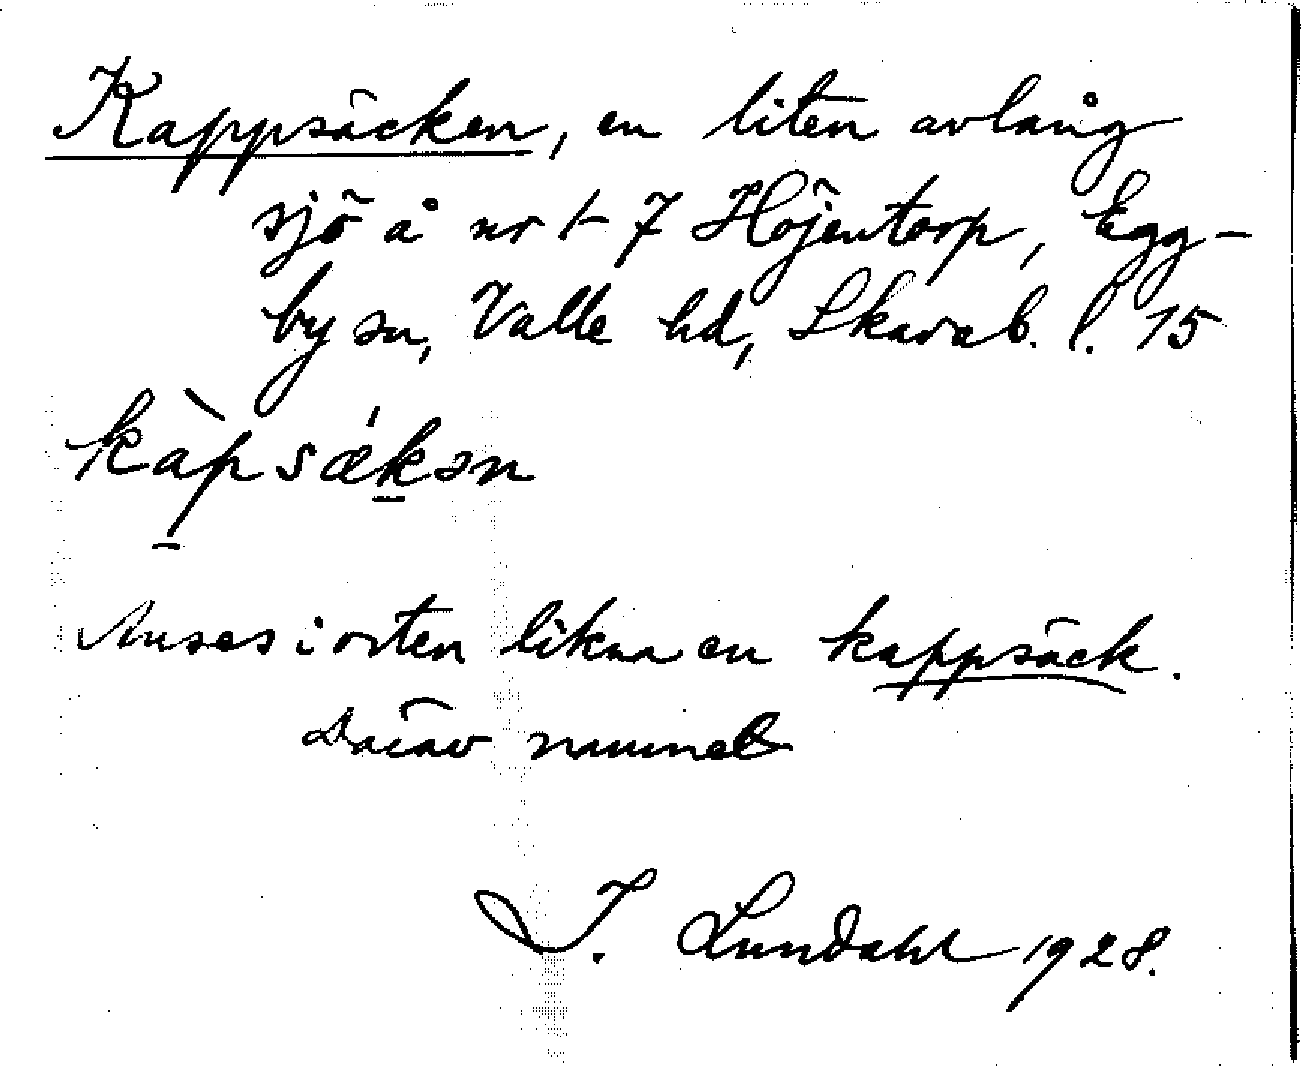 Kappsäcken, en liten avlång
sjö å nr 1-7 Höjentorp, Egg-
by sn, Valle hd, Skarab. l. 15
kàpsǽkən
Anses i orten likna en kappsäck.
Därav namnet
I. Lundahl 1928.